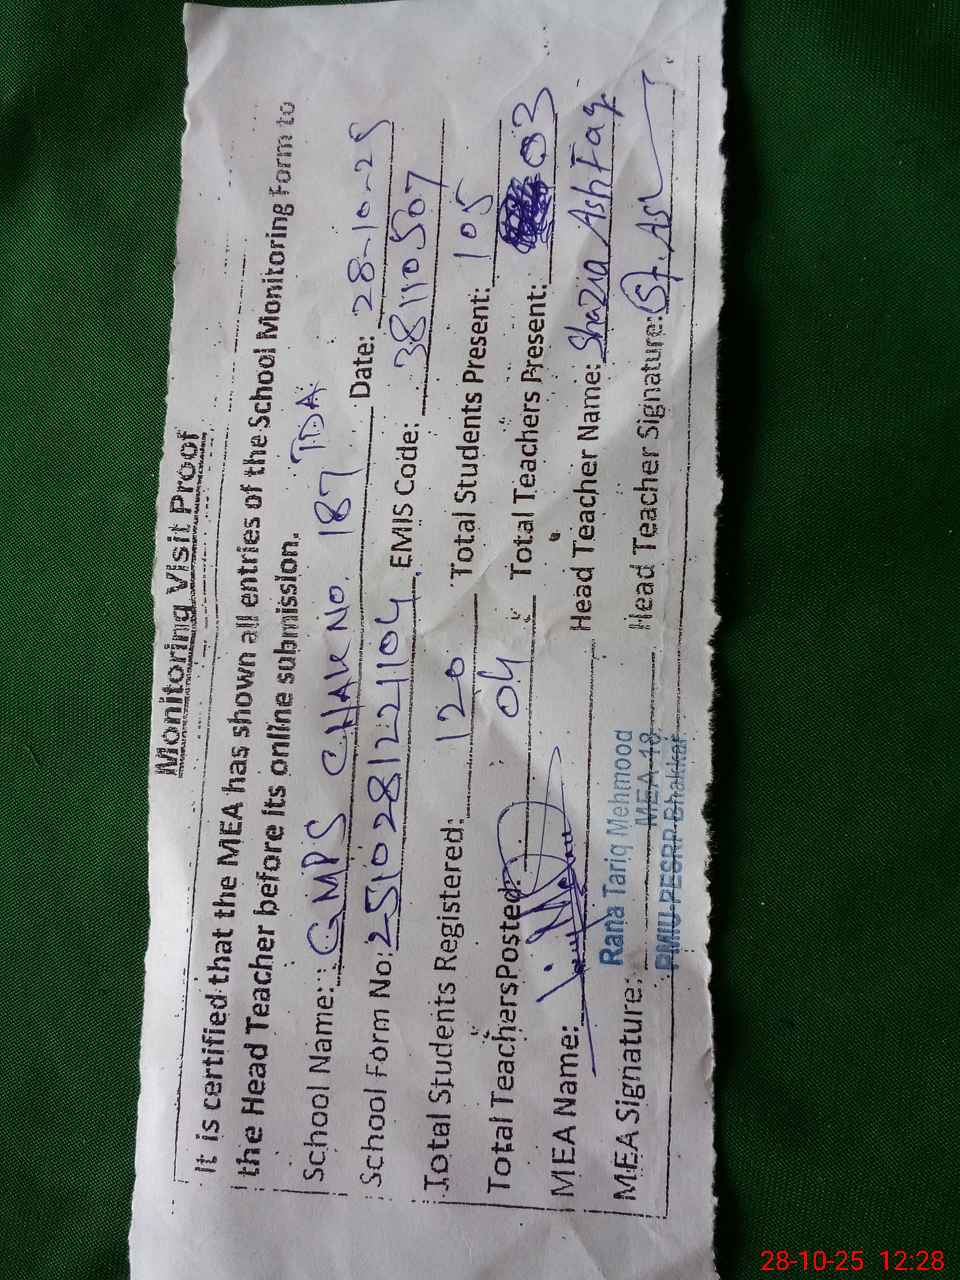 Monitoring Visit Proof
It is certified that the MEA has shown all entries of the School Monitoring Form to
the Head Teacher before its online submission.
School Name: GMPS CHAK NO. 187 TDA Date: 28-10-25
School Form No: 251028122104 EMIS Code: 38110507
Total Students Registered: 120 Total Students Present: 105
Total Teachers Posted: 04 Total Teachers Present: 03
MEA Name: Head Teacher Name: Shazia Ashfaq
MEA Signature: Head Teacher Signature:
Rana Tariq Mehmood
MEA-18
PMIU-PESRP Bhakkar
28-10-25 12:28